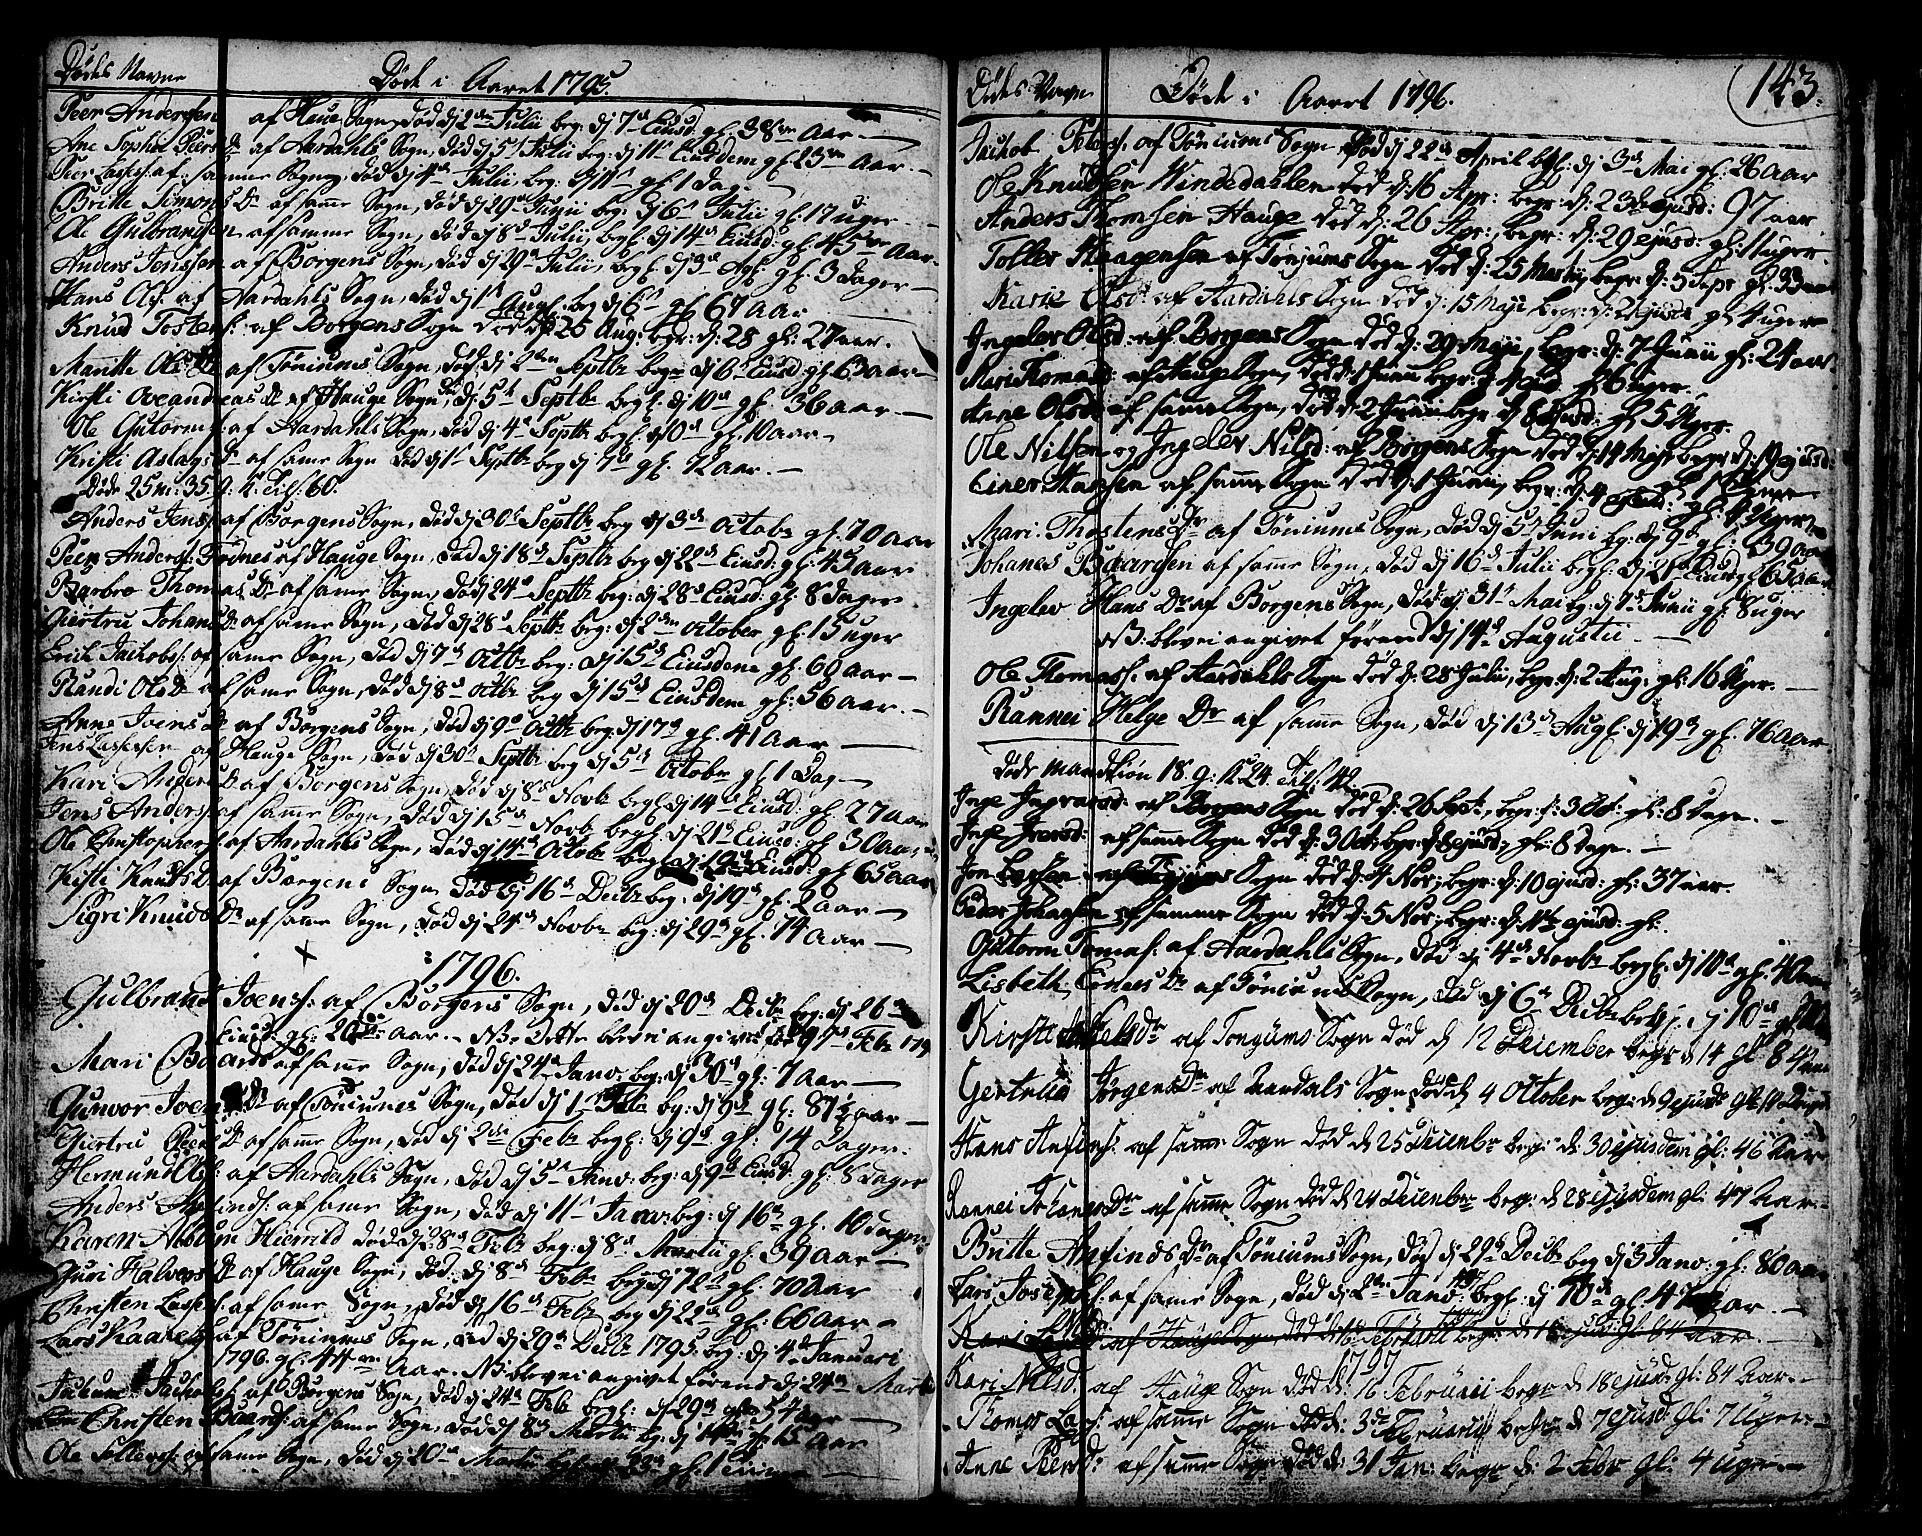 Dødes Navne
Døde i Aaret 1795.
Peer Andersen af Hauge Sogn, død dj 2den Julii beg: dj 7d Eiusd: gl: 38 Aar —
Ane Sophia Peers D: af Aardahls Sogn, død dj 5t Julii beg: dj 11t Eiusdem gl: 23 Aar. —
Peer Lasses: af samme Sogn, død dj 4d Julii, beg: dj 11t gl: 1 Dag. —
Britte Simons Dr af samme Sogn, død dj 29d Junii beg: dj 6t Julii gl: 17 uger —
Ole Gulbrandsen af samme Sogn, død dj 8d Julii, begl: dj 14d Eiusd: gl: 45 Aar.
Anders Jonssen af Borgens Sogn, død dj 29d Julii, begl: dj 3d Agl: gl: 3 Dager —
Hans Ols: af Aardahls Sogn, død dj 1t Augl: beg dj 6t gl 67 Aar
Knud Tostens: af Borgens Sogn død dj: 25 Aug: bgr: dj 28 gl: 27 aar.
Maritte Ols Dr af Tøniums Sogn, død dj 2den Septbr begr dj 6t Eiusd gl 63 aar —
Kirsti Oveandreas Dr af Hauge Sogn, dj: 5t Septbr begl: dj 10d gl: 36 aar. —
Ole Gutorms: af Aardahls Sogn, død dj 4d Septbr begl: dj 10d gl: 10 aar —
Kristi Aslags Dr af same Sogn død dj 1t Septbr beg dj 7d gl: 72 aar. —
Døde 25 m: 35 q: k: Til: 60.
Anders Jens: af Borgens Sogn, død dj 30t Septbr beg dj 3d Octobr gl: 70 aar
Peer Anders: Fodnes af Hauge Sogn, død dj 18d Septbr beg dj 22d Eiusd: gl: 43 aar
Barbro Thomas Dr af same Sogn, død dj 24d Septbr beg: dj 28d Eiusd: gl: 8 Dager
Giertru Johans Dr af same Sogn, død dj 28d Septbr beg: dj 2den October, gl: 15 uger
Erich Jachobs: af same Sogn, død dj 7d Octbr beg: dj 15d Eiusdem gl: 60 aar —
Randi Ols Dr af same Sogn, død dj 8d octbr beg dj 15d Eiusdem gl: 56 aar. —
Anne Joens Dr af Borgens Sogn, død dj 9d Octbr beg: dj 17d gl: 41 aar —
Jens Lassessen af Hauge Sogn, død dj 30t Septbr beg dj 5t Octobr gl 1 Dag —
Kari Anders Dr af Borgens Sogn, død dj 8d Novbr begl: dj 14d Eiusd: gl: 27 aar
Jens Anders: af same Sogn, død dj 15d Novbr begl: dj 21d Eiusd: gl 30 aar,
Ole Christophers: af Aardahls Sogn, død dj 14d Octob beg dj 19d Eiusd: gl 65 aar
Kisti Knuds D: af Borgens Sogn død dj 16d Decbr beg: dj 19d gl: 2 aar —
Sigri Knuds Dr af same Sogn, død dj 24d Novbr beg: dj 29d gl: 74 aar —
1796.
Gulbrand Joens: af Borgens Sogn, død dj 20d Decbr beg: dj 26d
Eiusd: gl: 20 aar. — NB: Dette blev ei angivet før 7d Febr 179
Mari Baards D af same Sogn, død dj 24d Janv: beg: dj 30d gl: 7 aar —
Gunvor Joens Dr af Tøniums Sogn, død dj 1t Febr bg: dj 9d gl: 87½ aar —
Giertru Peers Dr af same Sogn, død dj 2den Febr begl: dj 9d gl: 14 Dager.
Hermund Ols: af Aardahls Sogn, død dj 5t Janv: beg: dj 9d Eiusd: gl: 8 Dager
Anders Amunds: af same Sogn, død dj 11t Janv: bg: dj 16d gl: 10 dager
Karen Abbum Hierild død dj 28d Febr beg: dj 8d Martii gl: 39 aar —
Guri Halvors Dr af Hauge Sogn, død dj 8d Febr beg dj 12d gl: 70 aar
Christen Lasses: af same Sogn, død dj 16d Febr beg dj 22d gl: 66 aar —
Lars Kaare af Tøniums Sogn, død dj 29d Decbr 1795. beg: dj 4d Januari
1796. gl: 44 Aar. NB: blev ei angivet førend dj 24d Marti
Jachobs: af Borgens Sogn, død dj 24d Feb begl: dj 29d gl: 54 aar —
Christen Baards: af same Sogn, død dj 8d Martii bg: dj 14d gl: 15 aar
Ole Tollevs: af same Sogn, død dj 20d Martii dj 23d gl: 1 time —
Dødes Navn
Døde i Aaret 1796.
143.
Jachob Peters: af Tøniums Sogn død dj 22d April bgl: dj 3d Mai gl: 26 Aar
Ole Knudsen Vindedahlen død d: 16 Apr: begr: d: 23de ejusd: 97 aar
Anders Thomsen Hauge død d: 26 Apr:, begr: d: 29 ejusd: gl: 11 uger.
Toller Haagensen af Tønjums Sogn død d: 25 Martii begr: d: 5 Apr gl: 33 aar
Karie Olsd: af Aardahls Sogn død d: 15 Maji begr: d: 21 ejusd gl 4 uger
Ingeler Olsd: af Borgens Sogn død d: 29 Maji, begr: d: 7 Junii gl: 24 aar
Mari Thomasd: af Hauge Sogn, død d: 1 Junii begr: d: 4 ejusd gl 6 uger.
Anne Olsd: af samme Sogn, død d: 2 Junii begr d: 8 Ejusd: gl 5 uger.
Ole Nilsen og Ingeler Nilsd: af Borgens Sogn død d: 14 Maji begr d: 19 ejusd:
Einer Hansen af samme Sogn død d: 1 Junii, begr: d: 4 ejusd: gl: 4 uger
Mari Thostens Dr af Tøniums Sogn, død dj 5t Juni bg: dj 9d gl: 39 aar
Johanes Baardsen af same Sogn, død dj 16d Julii begl: dj 21d Eiusd gl 65 aar
Ingelev Hans Dr af Borgens Sogn, død dj: 31t Mai bg: dj 7d Junii gl: 8 uger
NB: blev ei angivet førend dj 14d Augustii. —
Ole Thomass: af Aardahls Sogn død d: 28 Julii, begr: d: 2 Aug: gl: 16 uger. —
Rannei Helge Dr af same Sogn, død dj 13d Augl: dj 19d gl: 76 aar
Døde Mandkiøn 18. q: k: 24. Til: 42.
Inge Ingvarsd: af Borgens Sogn død d: 26 Sept:, begr: d: 3 Oct: gl: 8 Dage. —
Inge Iversd: af samme Sogn død d: 3 Oct: begr: d: 8 ejusd: gl: 8 Dage. —
Jon Lassen af Tønjums Sogn død d: 4 Nov: begr: d: 10 ejusd: gl: 37 aar.
Peder Johansen af samme Sogn død d: 5 Nov: begr: d: 11te ejusd: gl:
Gutorm Tomas: af Aardahls Sogn, død dj 4d Novbr begl: dj 10d gl: 40 aar
Lisbeth Dr af Tøniums Sogn, død dj 6t Decbr begl: dj 10d gl:
Kirste dtr af Tonyums Sogn død d 12 December begr d 14 gl: 84 aar
Gertrud Jørgensdr af Aardals Sogn død d 4 October begr: d 9 ejusd: gl:
Hans Anfins: af same Sogn død d: 25 Decembr begr: d: 30 ejusdem gl: 46 Aar
Rannei Johanesdr af same Sogn død d: 24 December begr: d: 28 ejusdem gl: 47 Aar. —
Britte Anfinds Dr af Tøniums Sogn, død dj 29d Decbr beg dj 3 Janv: gl: 80 aar
Lars Josephs: af same Sogn, død dj 2d Janv: begl: dj 10d gl: 47 aar. —
Kari af Hauge Sogn død d: 16 Februarii begr: d: 18 ejusd: gl: 84 aar. —
1797
Kari Nilsd: af Hauge Sogn død d: 16 Februarii begr d 18 ejusd: gl: 84 Aar. —
Thomas Lars: af same Sogn død d: 3de Februarii begr: d: 7 ejusd: gl: 7 Uger. —
Anne Peersd: af same Sogn død d: 31 Jan: begr d: 2 Febr gl: 4 uger —